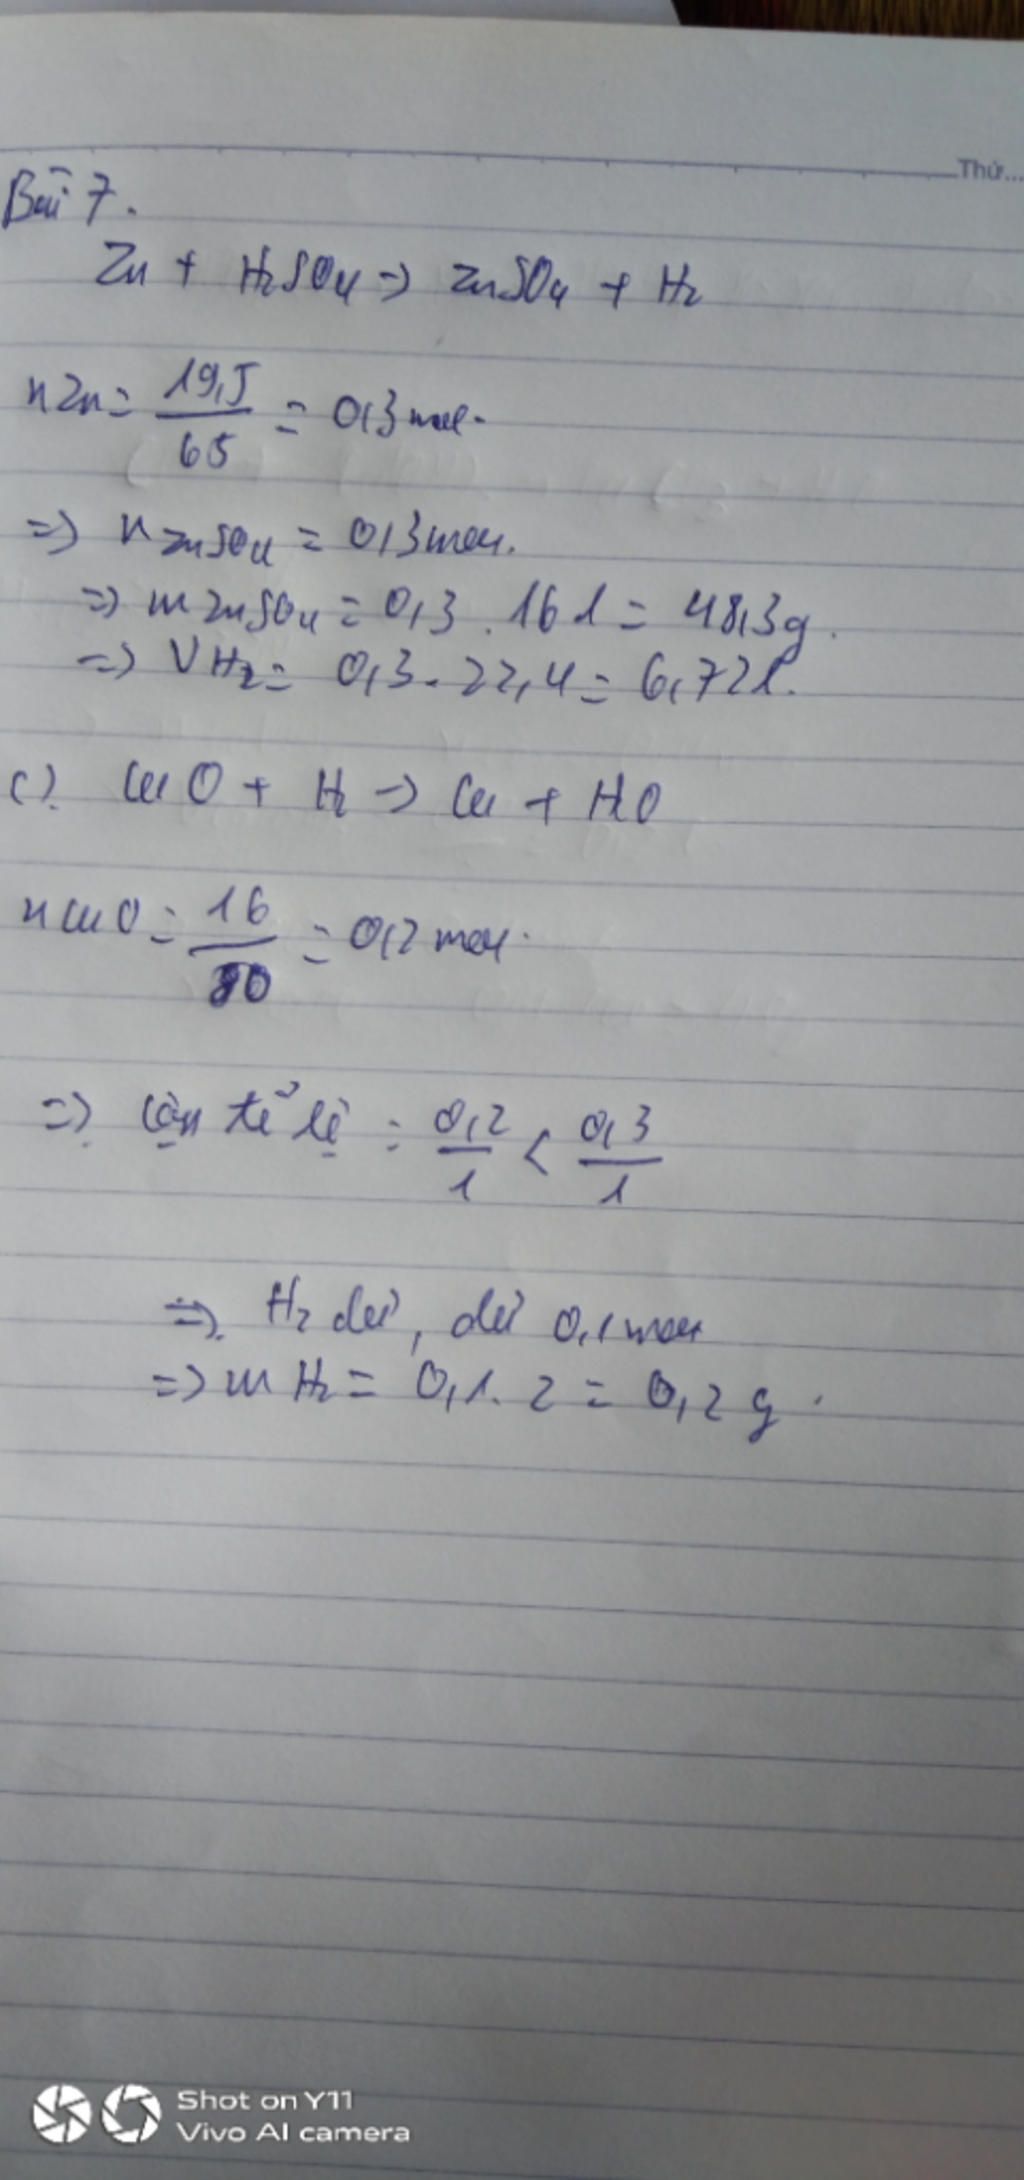 Thứ...
Bài 7.
Zn + H2SO4 => ZnSO4 + H2
nZn = 19,5 / 65 = 0,3 mol.
=> n ZnSO4 = 0,3 mol.
=> m ZnSO4 = 0,3 . 161 = 48,3g.
=> VH2 = 0,3 . 22,4 = 6,72l.
c). CuO + H2 -> Cu + H2O
nCuO = 16 / 80 = 0,2 mol.
=> Còn tỉ lệ : 0,2 / 1 < 0,3 / 1
=> H2 dư, dư 0,1 mol
=> m H2 = 0,1 . 2 = 0,2 g.
Shot on Y11
Vivo AI camera